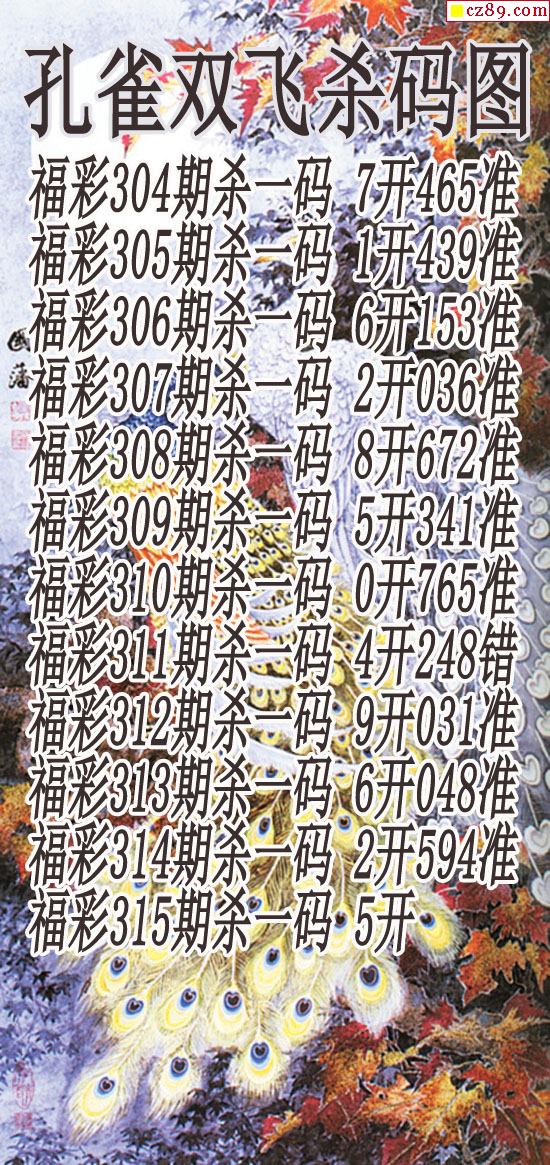 cz89.com
孔雀双飞杀码图
福彩304期杀一码 7开465准
福彩305期杀一码 1开439准
福彩306期杀一码 6开153准
福彩307期杀一码 2开036准
福彩308期杀一码 8开672准
福彩309期杀一码 5开341准
福彩310期杀一码 0开765准
福彩311期杀一码 4开248错
福彩312期杀一码 9开031准
福彩313期杀一码 6开048准
福彩314期杀一码 2开594准
福彩315期杀一码 5开